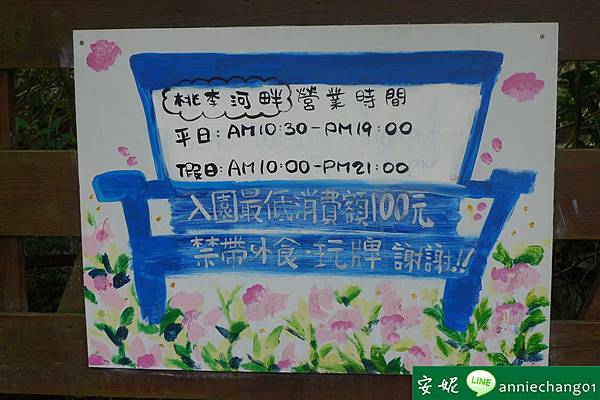 桃李河畔營業時間
平日:AM10:30-PM19:00
假日:AM10:00-PM21:00
入園最低消費額100元
禁帶外食·玩牌 謝謝!!
安妮 LINE anniechang01